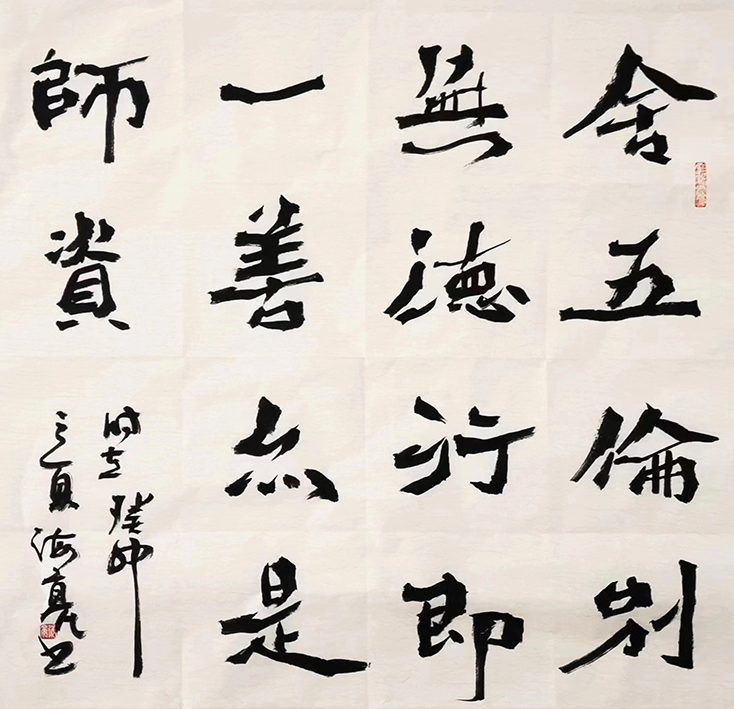 舍五倫别
無德行即
一善亦是
師資
時在癸卯
之夏海亮书